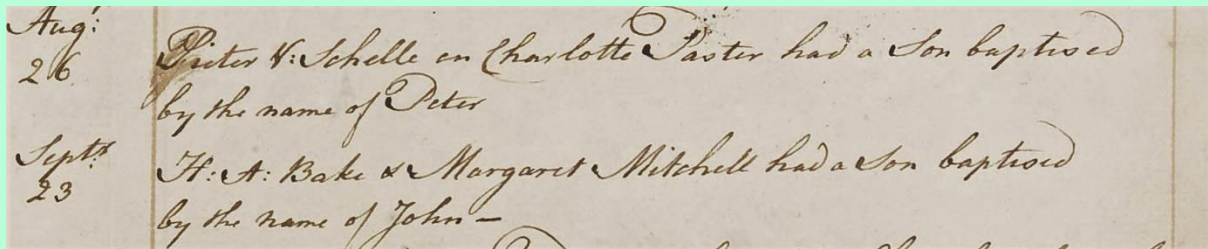 Aug:
26
Pieter V: Schelle en Charlotte Paster had a Son baptised
by the name of Peter
Septr
23
H: A: Bake & Margaret Mitchell had a Son baptised
by the name of John —